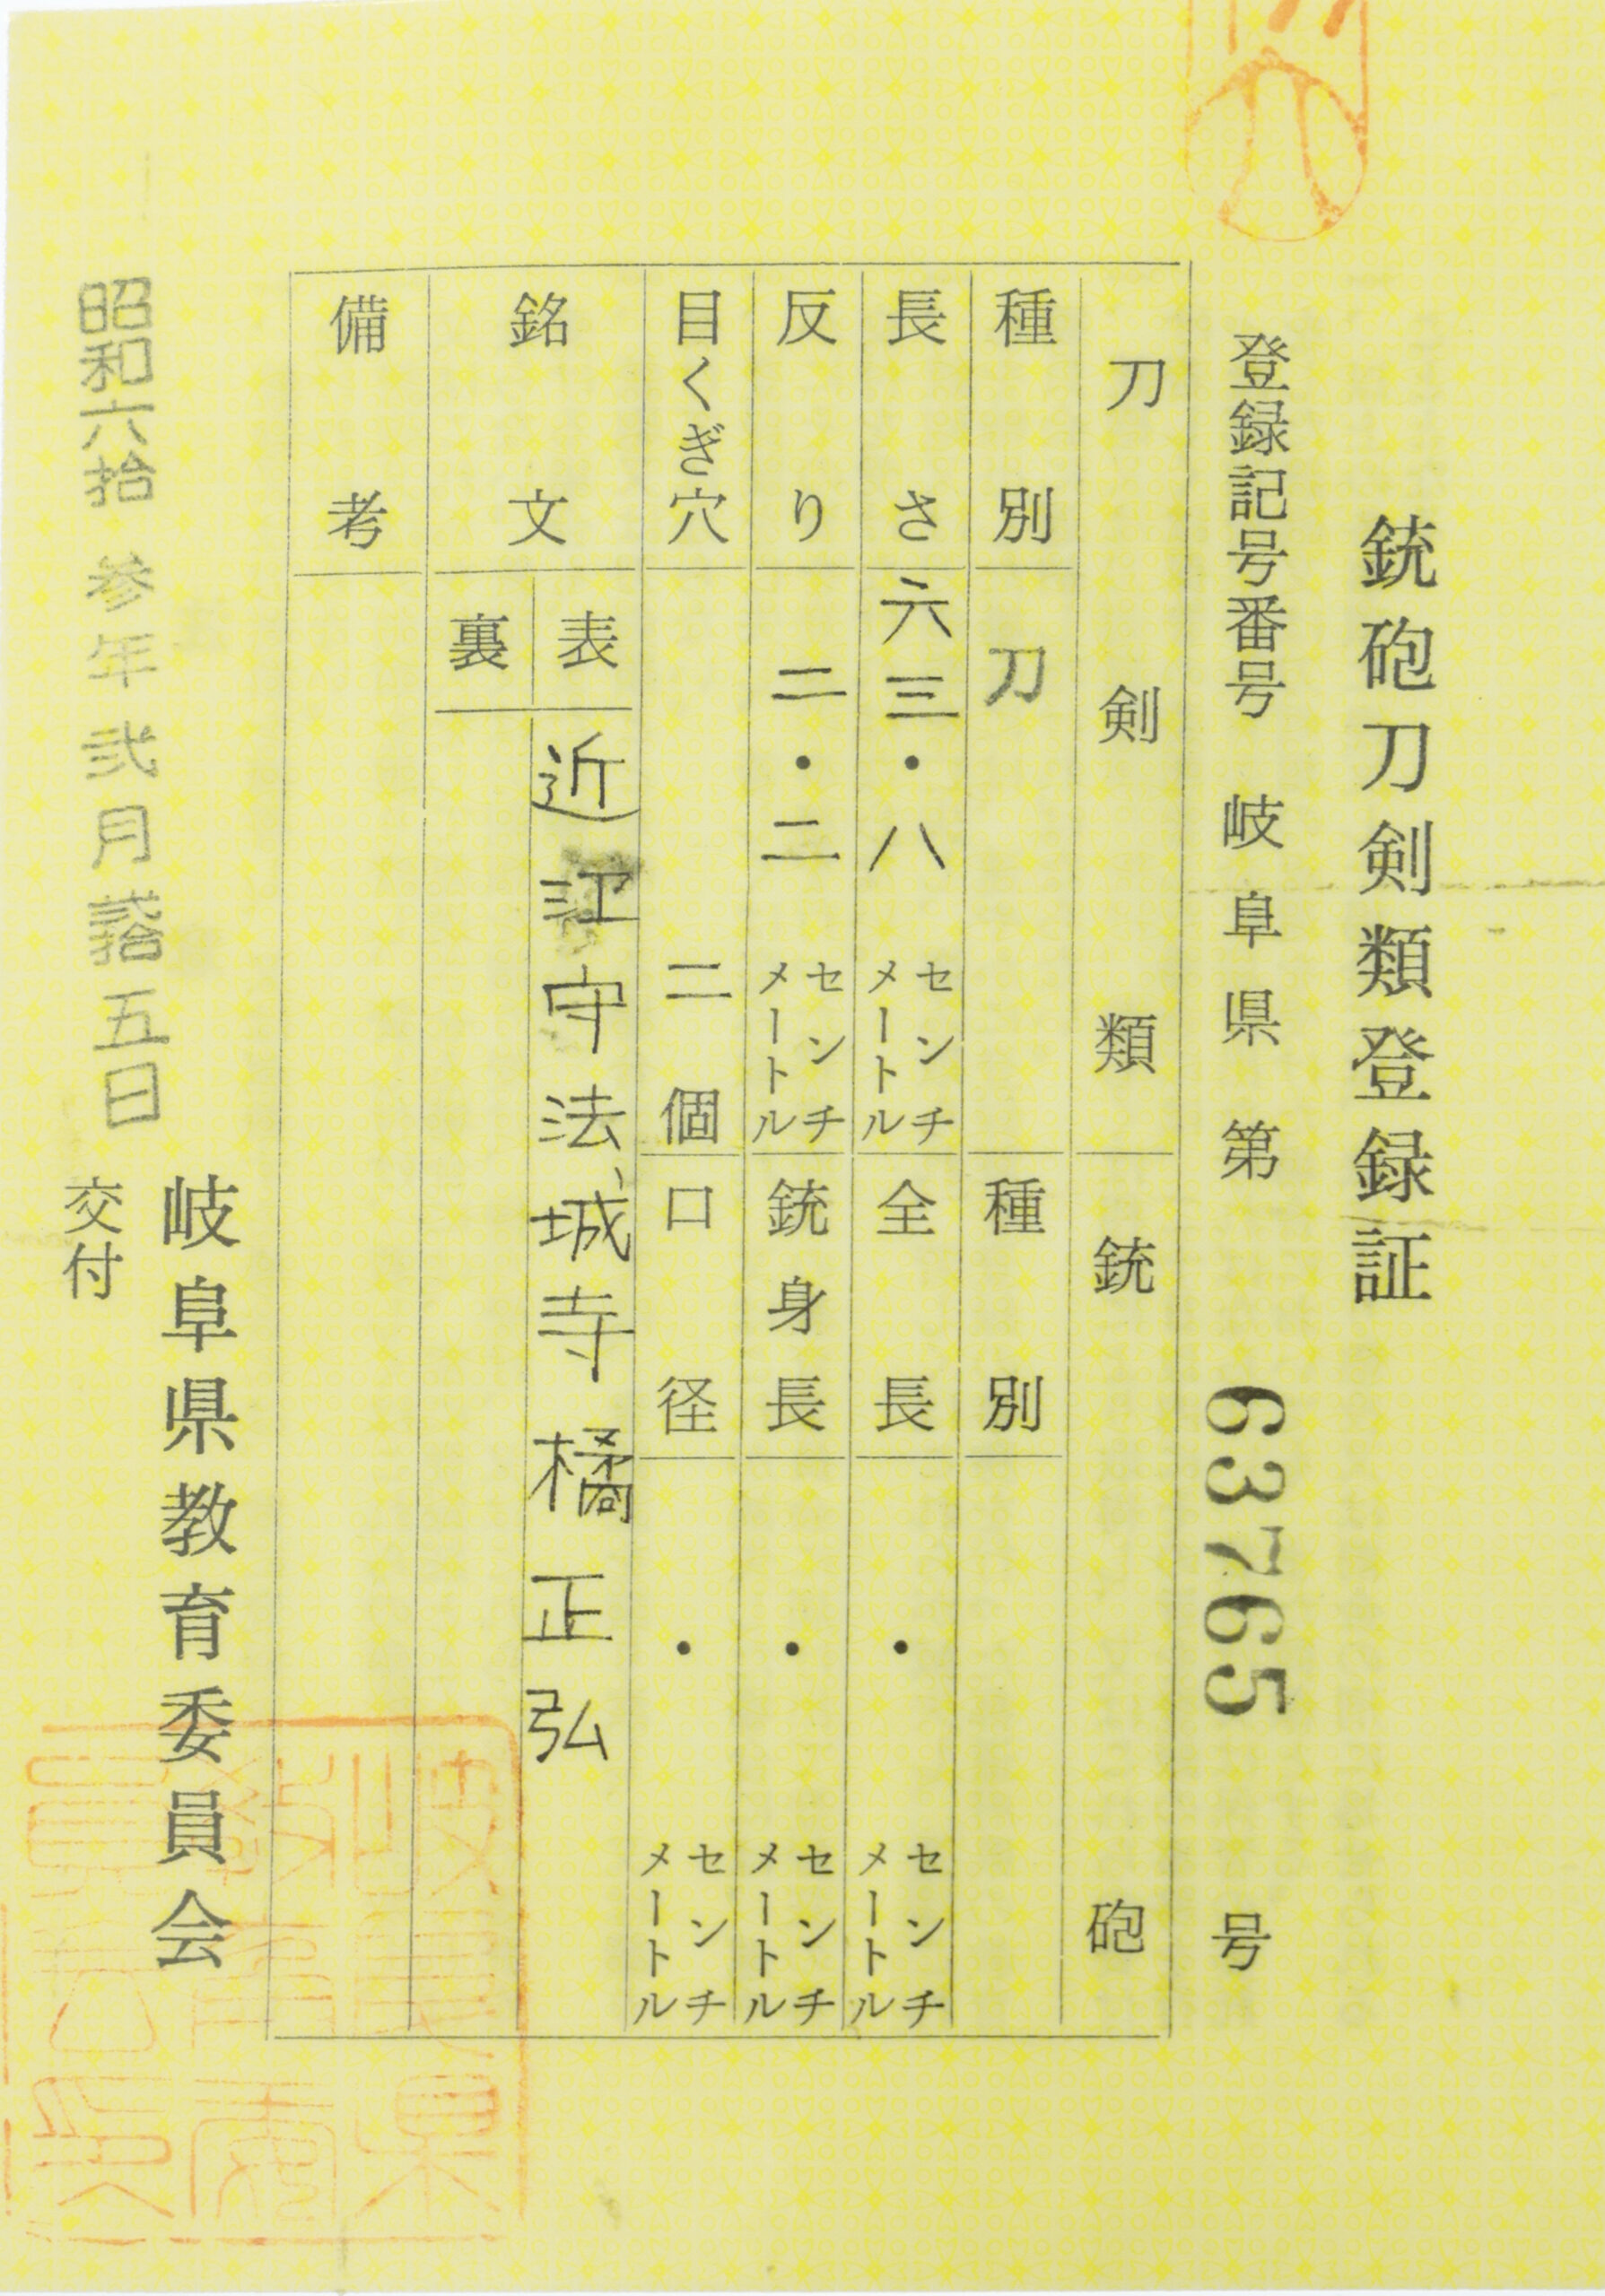 銃砲刀剣類登録証
登録記号番号 岐阜県 第 63765 号
刀剣類 銃砲
種別 刀 種別
長さ 六三・八 センチメートル 全長 ・ センチメートル
反り 二・二 センチメートル 銃身長 ・ センチメートル
目くぎ穴 二 個 口径 ・ センチメートル
銘文 表 近江守法城寺橘正弘
裏
備考
岐阜県教育委員会
昭和六拾参年弐月拾五日 交付